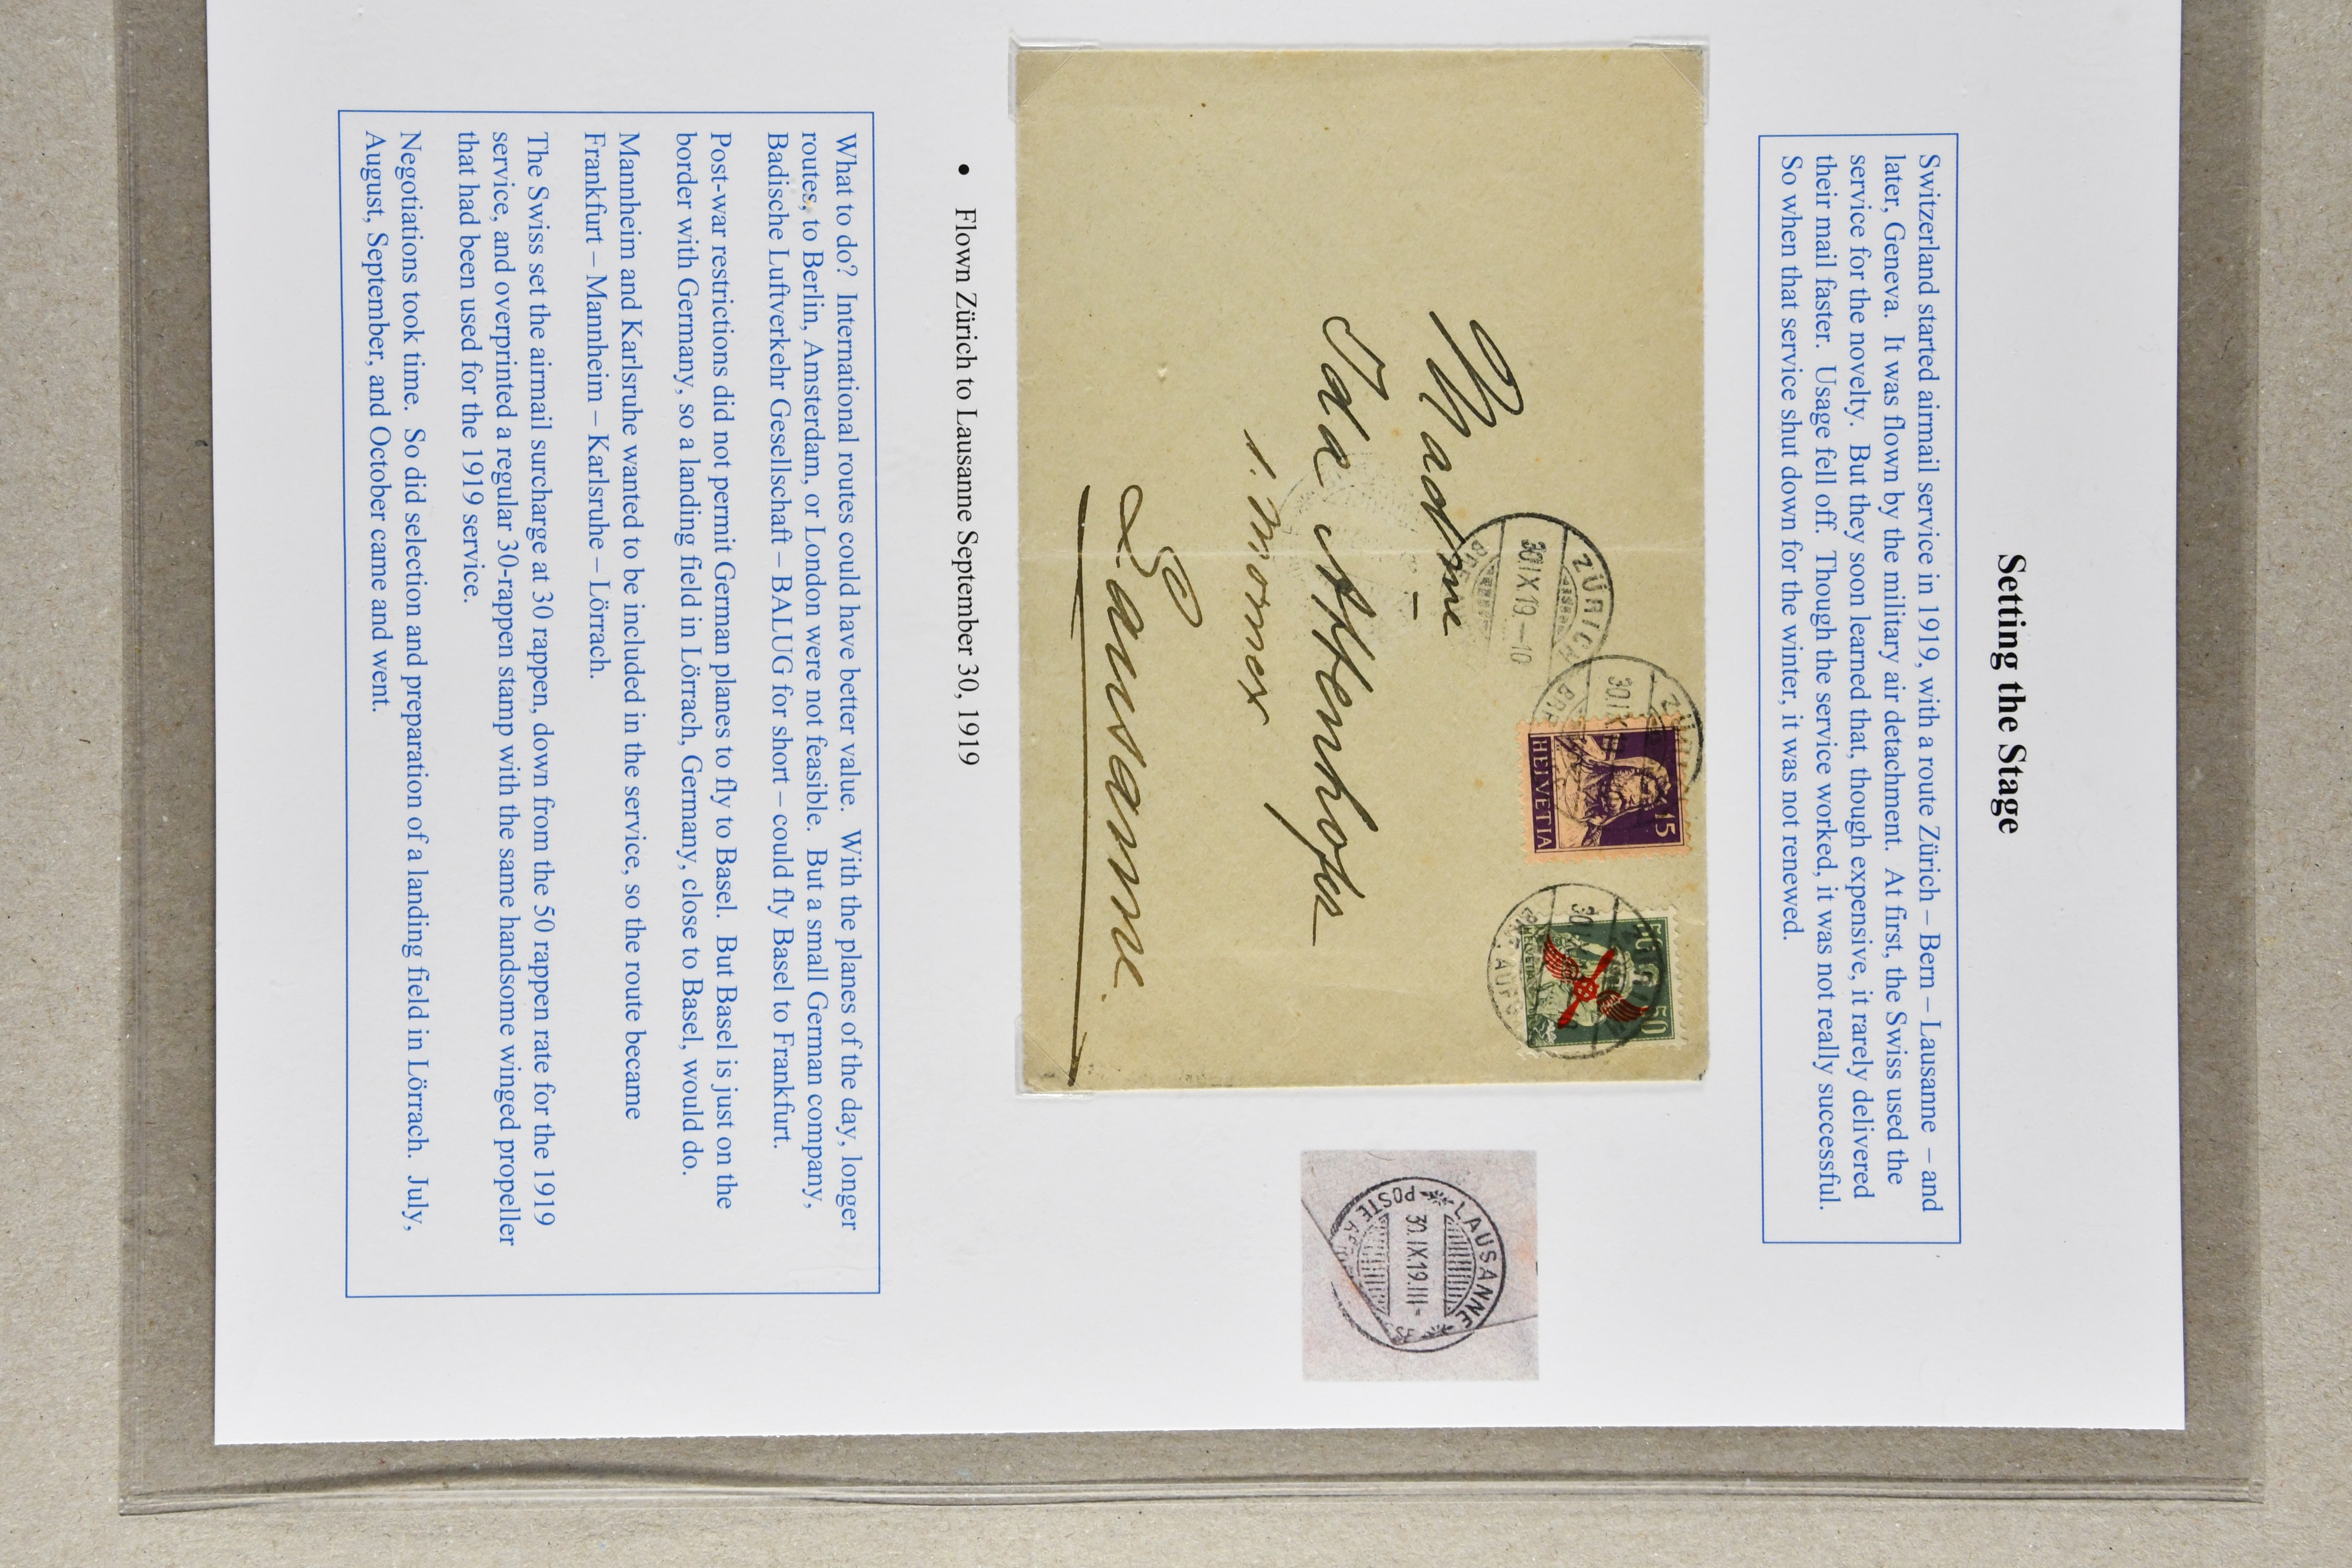 Setting the Stage
Switzerland started airmail service in 1919, with a route Zürich – Bern – Lausanne – and
later, Geneva. It was flown by the military air detachment. At first, the Swiss used the
service for the novelty. But they soon learned that, though expensive, it rarely delivered
their mail faster. Usage fell off. Though the service worked, it was not really successful.
So when that service shut down for the winter, it was not renewed.
ZÜRICH
30.IX.19–10
ZÜRICH
30.IX
15
HELVETIA
50
50
HELVETIA
30
Ida Attenhofer
1. Mornex
Lausanne.
LAUSANNE
30.IX.19.III-
POSTE AÉR SE
• Flown Zürich to Lausanne September 30, 1919
What to do? International routes could have better value. With the planes of the day, longer
routes, to Berlin, Amsterdam, or London were not feasible. But a small German company,
Badische Luftverkehr Gesellschaft – BALUG for short – could fly Basel to Frankfurt.
Post-war restrictions did not permit German planes to fly to Basel. But Basel is just on the
border with Germany, so a landing field in Lörrach, Germany, close to Basel, would do.
Mannheim and Karlsruhe wanted to be included in the service, so the route became
Frankfurt – Mannheim – Karlsruhe – Lörrach.
The Swiss set the airmail surcharge at 30 rappen, down from the 50 rappen rate for the 1919
service, and overprinted a regular 30-rappen stamp with the same handsome winged propeller
that had been used for the 1919 service.
Negotiations took time. So did selection and preparation of a landing field in Lörrach. July,
August, September, and October came and went.